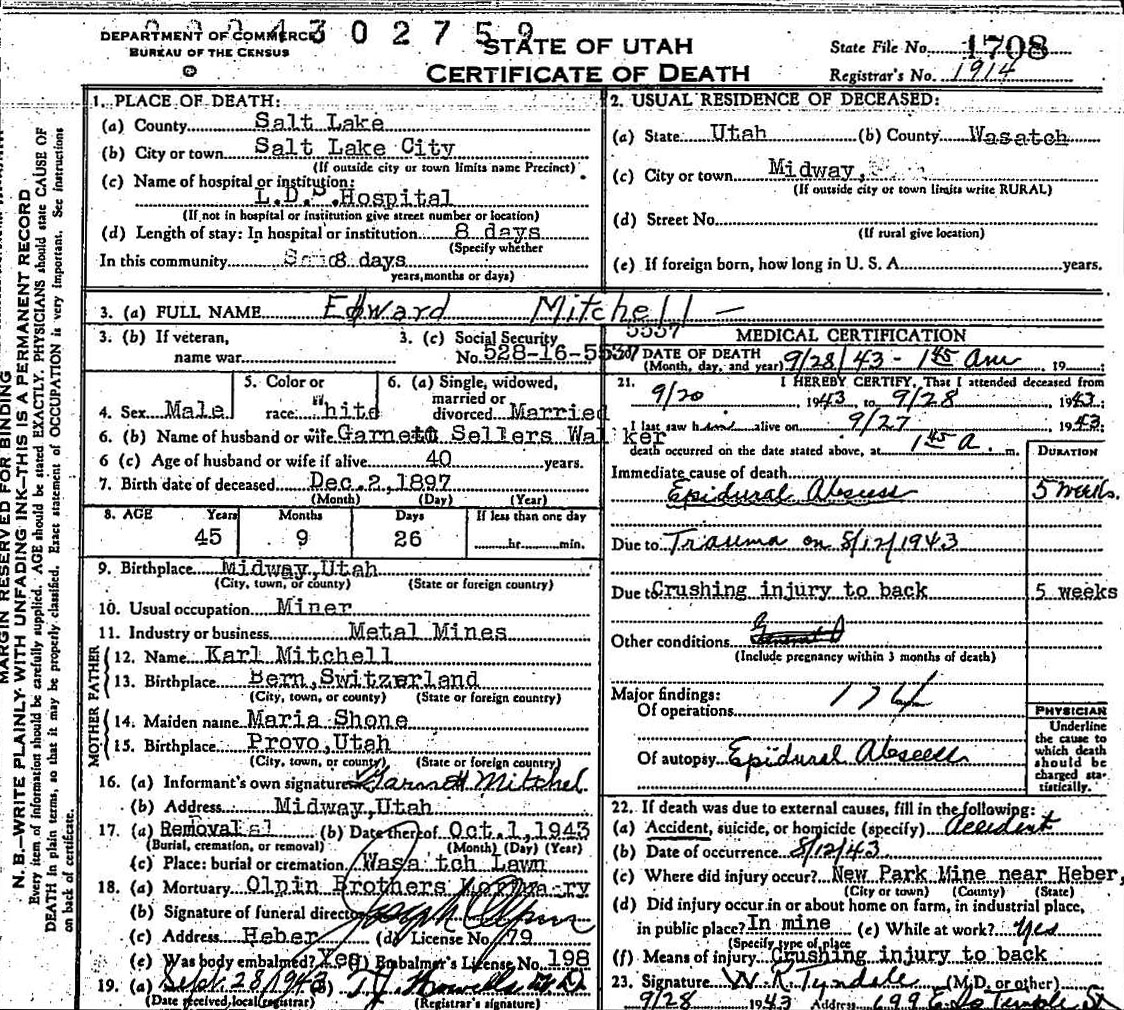 DEPARTMENT OF COMMERCE
BUREAU OF THE CENSUS
4 3 0 2 7 5 9
STATE OF UTAH
CERTIFICATE OF DEATH
State File No. 1708
Registrar's No. 1914
MARGIN RESERVED FOR BINDING
N. B.—WRITE PLAINLY WITH UNFADING INK—THIS IS A PERMANENT RECORD
Every item of information should be carefully supplied. AGE should be stated EXACTLY. PHYSICIANS should state CAUSE OF
DEATH in plain terms, so that it may be properly classified. Exact statement of OCCUPATION is very important. See Instructions
on back of certificate.
1. PLACE OF DEATH:
(a) County Salt Lake
(b) City or town Salt Lake City
(If outside city or town limits name Precinct)
(c) Name of hospital or institution:
L.D.S. Hospital
(If not in hospital or institution give street number or location)
(d) Length of stay: In hospital or institution 8 days
(Specify whether
In this community 8 days
years, months or days)
2. USUAL RESIDENCE OF DECEASED:
(a) State Utah (b) County Wasatch
(c) City or town Midway,
(If outside city or town limits write RURAL)
(d) Street No.
(If rural give location)
(e) If foreign born, how long in U. S. A. years.
3. (a) FULL NAME Edward Mitchell —
3. (b) If veteran,
name war
3. (c) Social Security
5537
No. 528-16-5537
4. Sex Male
5. Color or
race White
6. (a) Single, widowed,
married or
divorced Married
6. (b) Name of husband or wife Garnett Sellers Walker
6 (c) Age of husband or wife if alive 40 years.
7. Birth date of deceased Dec. 2, 1897
(Month) (Day) (Year)
8. AGE Years Months Days If less than one day
45 9 26 hr. min.
9. Birthplace Midway, Utah
(City, town, or county) (State or foreign country)
10. Usual occupation Miner
11. Industry or business Metal Mines
FATHER
12. Name Karl Mitchell
13. Birthplace Bern, Switzerland
(City, town, or county) (State or foreign country)
MOTHER
14. Maiden name Maria Shone
15. Birthplace Provo, Utah
(City, town, or county) (State or foreign country)
16. (a) Informant's own signature Garnett Mitchel
(b) Address Midway, Utah
17. (a) Removal (b) Date thereof Oct. 1, 1943
(Burial, cremation, or removal) (Month) (Day) (Year)
(c) Place: burial or cremation Wasatch Lawn
18. (a) Mortuary Olpin Brothers Mortuary
(b) Signature of funeral director Joseph Olpin
(c) Address Heber (d) License No. 79
(e) Was body embalmed? Yes (f) Embalmer's License No. 198
19. (a) Sept. 28/1943 (b) T.J. Howells M.D.
(Date received, local registrar) (Registrar's signature)
MEDICAL CERTIFICATION
DATE OF DEATH
(Month, day, and year) 9/28/43 - 1 45 Am 19
21. I HEREBY CERTIFY, That I attended deceased from
9/20 1943, to 9/28 1943;
I last saw him alive on 9/27 1943;
death occurred on the date stated above, at 1 45 a. m.
DURATION
Immediate cause of death
Epidural Abscess 5 weeks.
Due to Trauma on 8/12/1943
Due to Crushing injury to back 5 weeks
Other conditions
(Include pregnancy within 3 months of death)
Major findings:
Of operations
Of autopsy Epidural Abscess
PHYSICIAN
Underline
the cause to
which death
should be
charged sta-
tistically.
22. If death was due to external causes, fill in the following:
(a) Accident, suicide, or homicide (specify) accident
(b) Date of occurrence 8/12/43
(c) Where did injury occur? New Park Mine near Heber,
(City or town) (County) (State)
(d) Did injury occur in or about home on farm, in industrial place,
in public place? In mine (e) While at work? yes
(Specify type of place
(f) Means of injury Crushing injury to back
23. Signature W.R. Tyndale (M.D. or other)
9/28 1943 Address 699 E. So Temple St